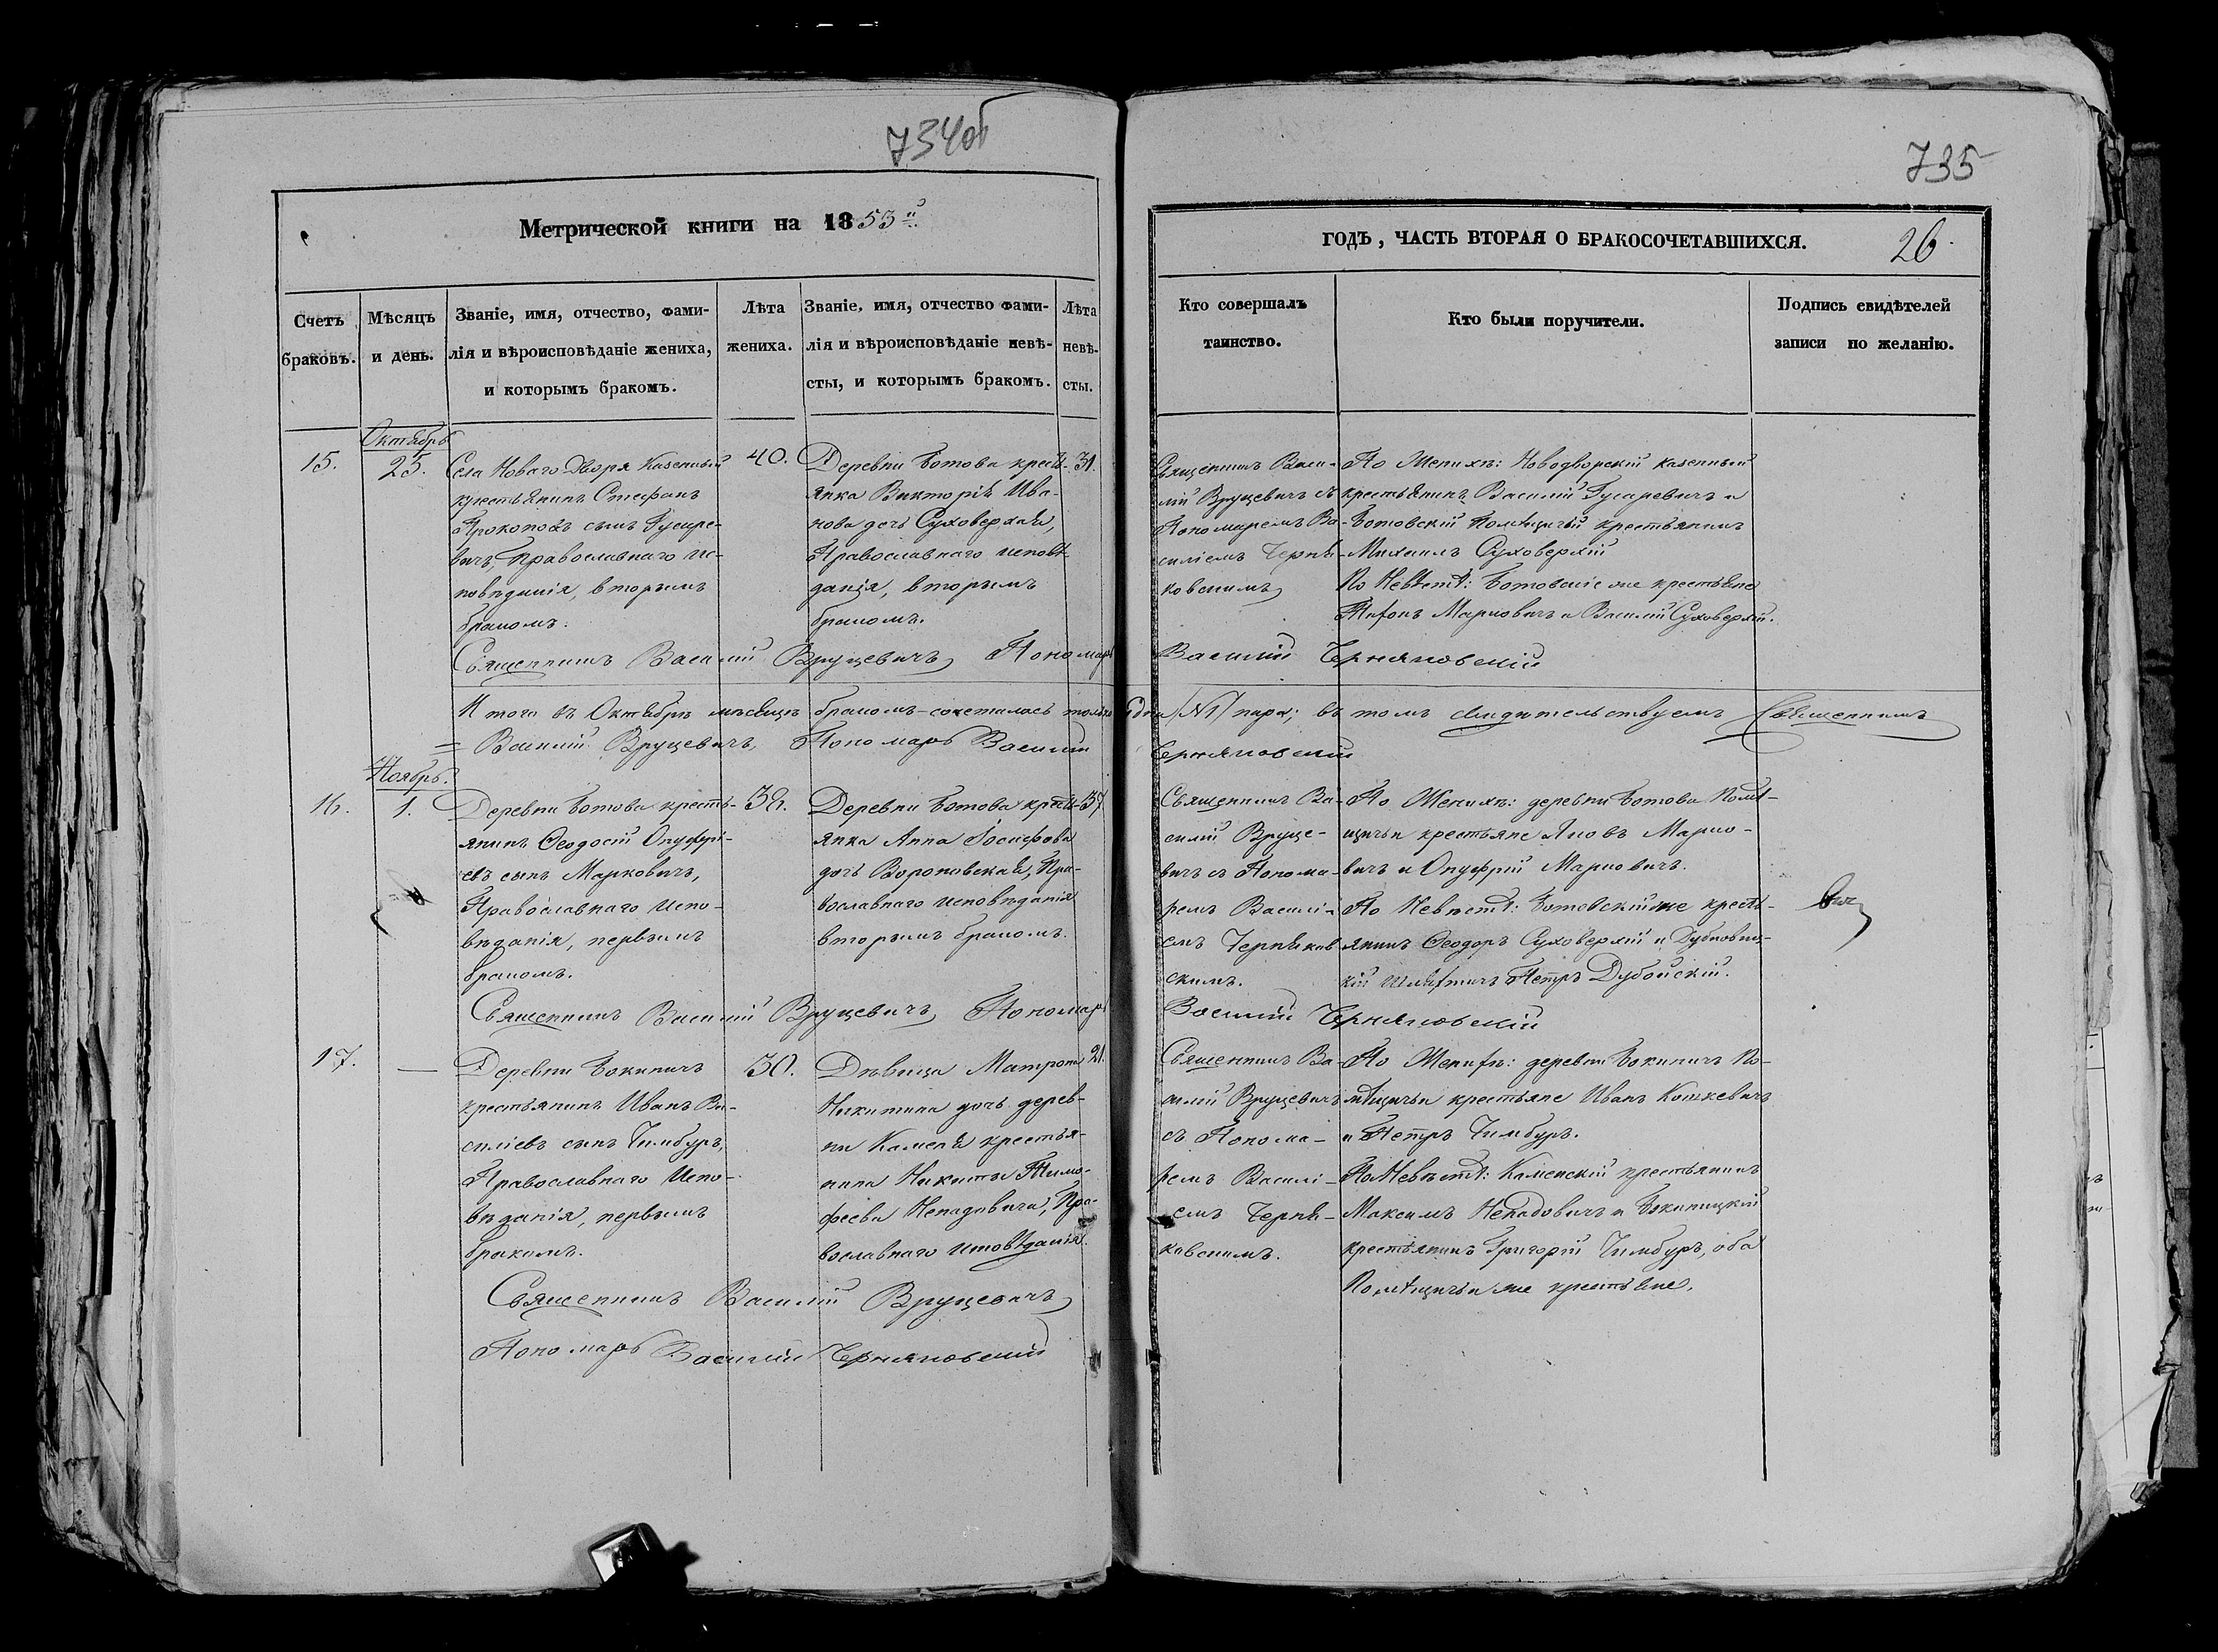 734об
735
Метрической книги на 1853й
ГОДЪ, ЧАСТЬ ВТОРАЯ О БРАКОСОЧЕТАВШИХСЯ.
26.
Счетъ
браковъ.
Мѣсяцъ
и день.
Званіе, имя, отчество, фами-
лія и вѣроисповѣданіе жениха,
и которымъ бракомъ.
Лѣта
жениха.
Званіе, имя, отчество фами-
лія и вѣроисповѣданіе невѣ-
сты, и которымъ бракомъ.
Лѣта
невѣ-
сты.
Кто совершалъ
таинство.
Кто были поручители.
Подпись свидѣтелей
записи по желанію.
Октябрь
15.
25.
Села Новаго Двора Казенный
крестьянинъ Стефанъ
Прокоповъ сынъ Гусаре-
вичъ, Православнаго ис-
повѣданія, вторымъ
бракомъ.
40.
Деревни Ботова кресть-
янка Викторія Ива-
нова дочь Суховерхая,
Православнаго исповѣ-
данія, вторымъ
бракомъ.
31.
Священникъ Васи-
лій Вруцевичъ съ
Пономаремъ Ва-
силіемъ Черня-
ковскимъ
По Женихѣ: Новодворскій казенный
крестьянинъ Василій Гусаревичъ и
Ботовскій помѣщичій крестьянинъ
Михаилъ Суховерхій
По Невѣстѣ: Ботовскіе же крестьяне
Марковичъ и Василій Суховерхій.
Священникъ Василій Вруцевичъ, Пономарь Василий Черняковский
Итого въ Октябрѣ мѣсяцѣ бракомъ сочеталась только одна /№1/ пара; въ томъ свидѣтельствуемъ Священникъ
Василій Вруцевичъ, Пономарь Василий Черняковский
Ноябрь.
16.
1.
Деревни Ботова кресть-
янинъ Ѳеодосій Онуфрі-
евъ сынъ Марковичъ,
Православнаго Испо-
вѣданія, первымъ
бракомъ.
38.
Деревни Ботова кресть-
янка Анна Іосифова
дочь Вороновская, Пра-
вославнаго исповѣданія
вторымъ бракомъ.
37
Священникъ Ва-
силій Вруце-
вичъ съ Понома-
ремъ Василі-
емъ Черняков-
скимъ.
По Женихѣ: деревни Ботова Помѣ-
щичьи крестьяне Яковъ Марко-
вичъ и Онуфрій Марковичъ.
По Невѣстѣ: Ботовскій же кресть-
янинъ Ѳеодоръ Суховерхій и
шляхтичъ Петръ Дубойскій.
Священникъ Василій Вруцевичъ, Пономарь Василий Черняковский
17.
—
Деревни Бокиничъ
крестьянинъ Иванъ Ва-
силіевъ сынъ Чимбуръ,
Православнаго Испо-
вѣданія, первымъ
бракомъ.
30.
Дѣвица Матрона
Никитина дочь дерев-
ни Каменя крестья-
нина Никиты Тимо-
феева Ненадовича, Пра-
вославнаго исповѣданія.
21.
Священникъ Ва-
силій Вруцевичъ
съ Понома-
ремъ Василі-
емъ Черня-
ковскимъ.
По Женихѣ: деревни Бокиничъ По-
мѣщичьи крестьяне Иванъ Кошкевичъ
и Петръ Чимбуръ.
По Невѣстѣ: Каменскій крестьянинъ
Максимъ Ненадовичъ и Бокиницкій
крестьянинъ Григорій Чимбуръ, оба
Помѣщичьи же крестьяне.
Священникъ Василій Вруцевичъ
Пономарь Василий Черняковский